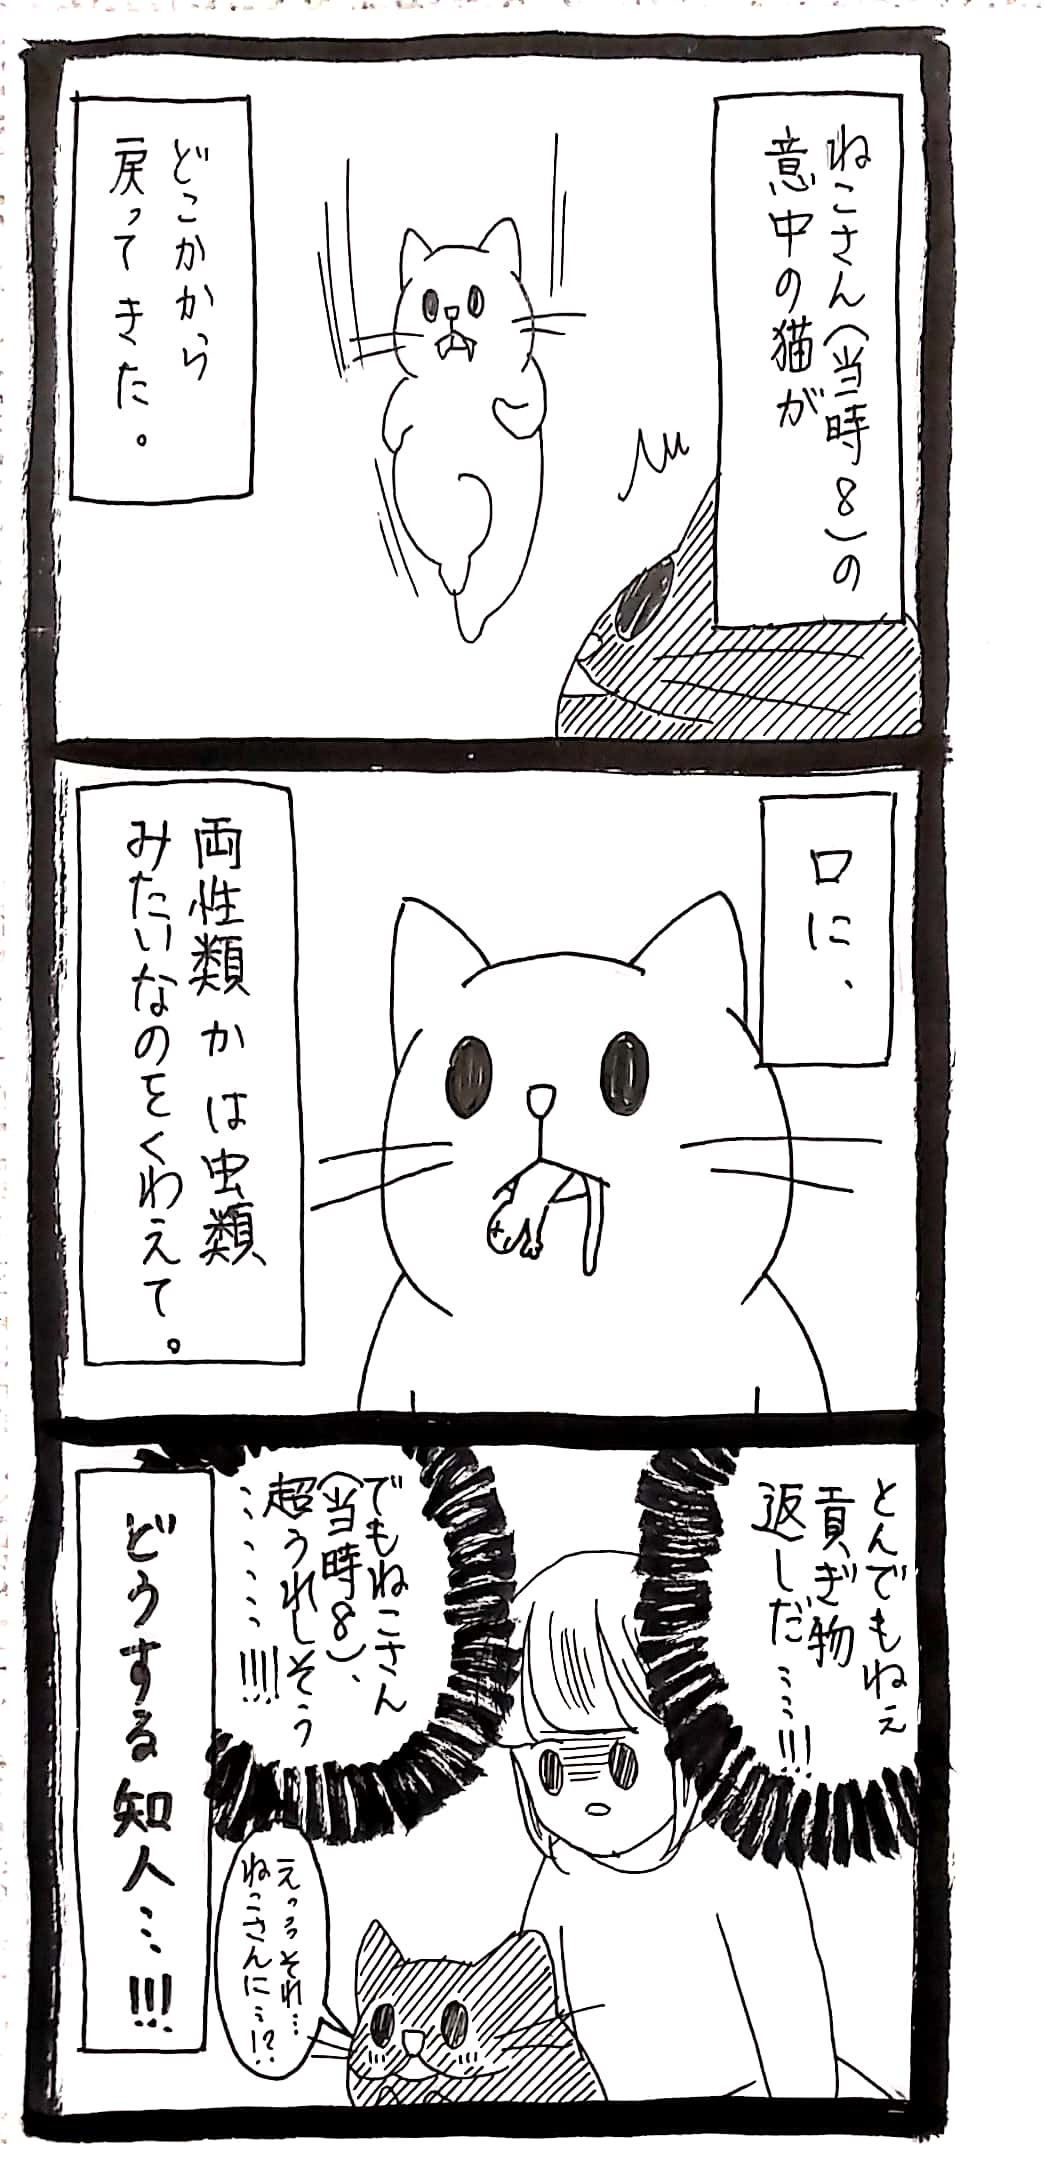 ねこさん(当時8)の
意中の猫が
どこかから
戻ってきた。
口に、
両性類かは虫類
みたいなのをくわえて。
とんでもねぇ
貢ぎ物
返しだ……!!!
でもねこさん
(当時8)、
超うれしそう
…………!!!!
えっっそれ…
ねこさんに…!?
どうする知人…!!!